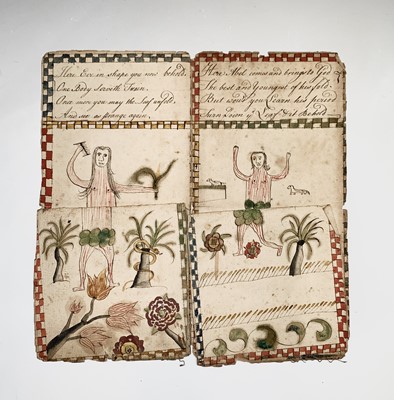 Here Eve in shape you now behold.
One Body Serveth Twain.
Once more you may the leaf unfold.
And see as strange again.
Here Abel comes and brings to God
The best and Youngest of his fold.
But wou'd you Learn his period
Turn Down yᵉ Leaf & it Behold